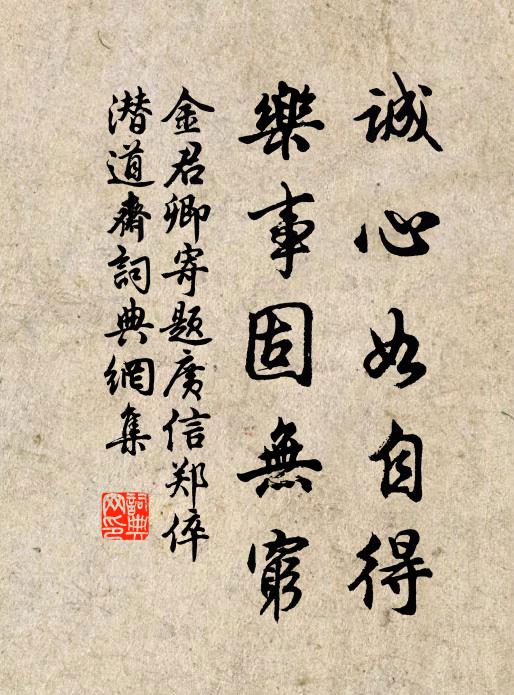 誠心如自得
樂事固無窮
金君卿寄题廣信郑倅
潜道齋詞典網集
詞典
网印